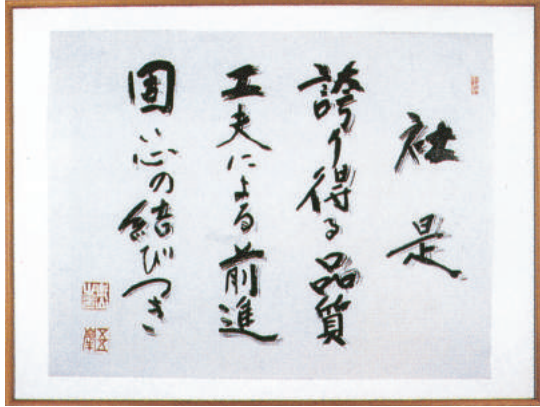 社是
誇り得る品質
工夫による前進
固い心の結びつき